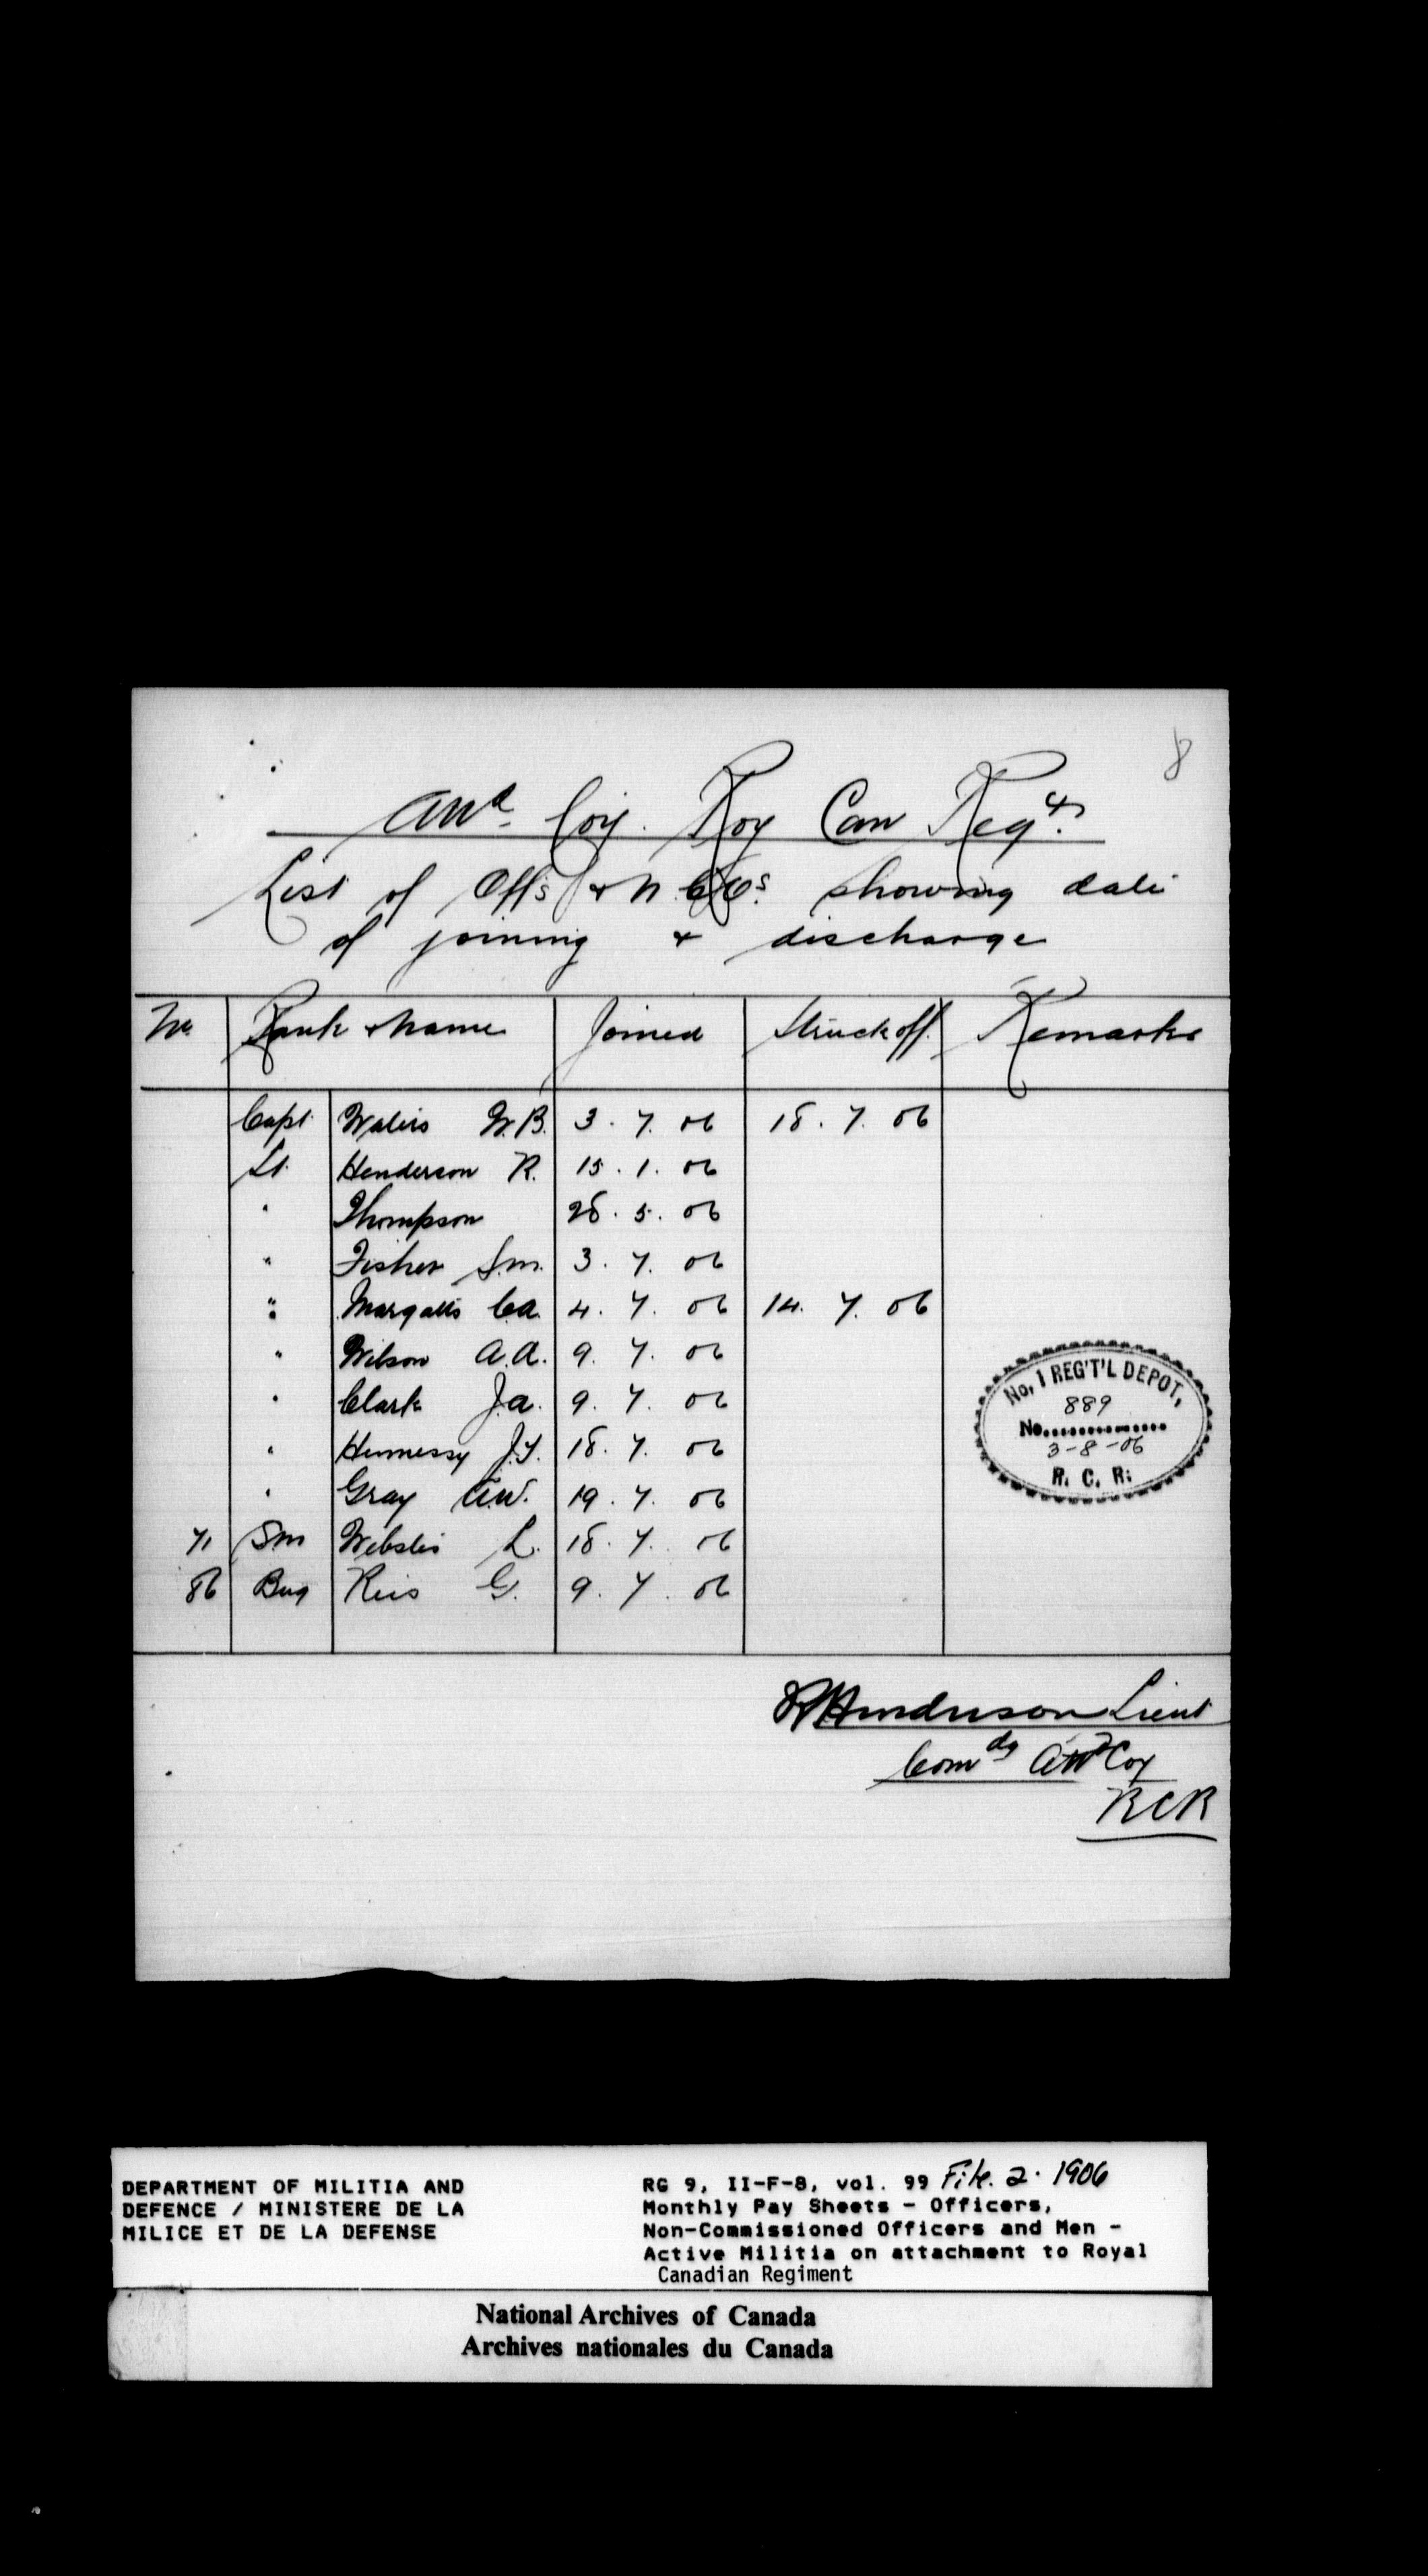 8
Attd Coy. Roy Can Regt.
List of Offs & N.C.Os. showing date
of joining & discharge
No. Rank & Name Joined Struck off. Remarks
Capt Waters W.B. 3. 7. 06 18. 7. 06
Lt. Henderson R. 15. 1. 06
" Thompson 28. 5. 06
" Fisher S.M. 3. 7. 06
" C.A. 4. 7. 06 14. 7. 06
" Wilson A.A. 9. 7. 06
" Clark J.A. 9. 7. 06
" Hennessy 18. 7. 06
" Gray A.W. 19. 7. 06
71 SM Webster L. 18. 7. 06
86 Bug G. 9. 7. 06
No. 1 REG'T'L DEPOT,
889
No...............
3-8-06
R. C. R.
Henderson Lieut
Comdg Attd Coy
RCR
DEPARTMENT OF MILITIA AND
DEFENCE / MINISTERE DE LA
MILICE ET DE LA DEFENSE
RG 9, II-F-8, vol. 99 File. 2. 1906
Monthly Pay Sheets - Officers,
Non-Commissioned Officers and Men -
Active Militia on attachment to Royal
Canadian Regiment
National Archives of Canada
Archives nationales du Canada